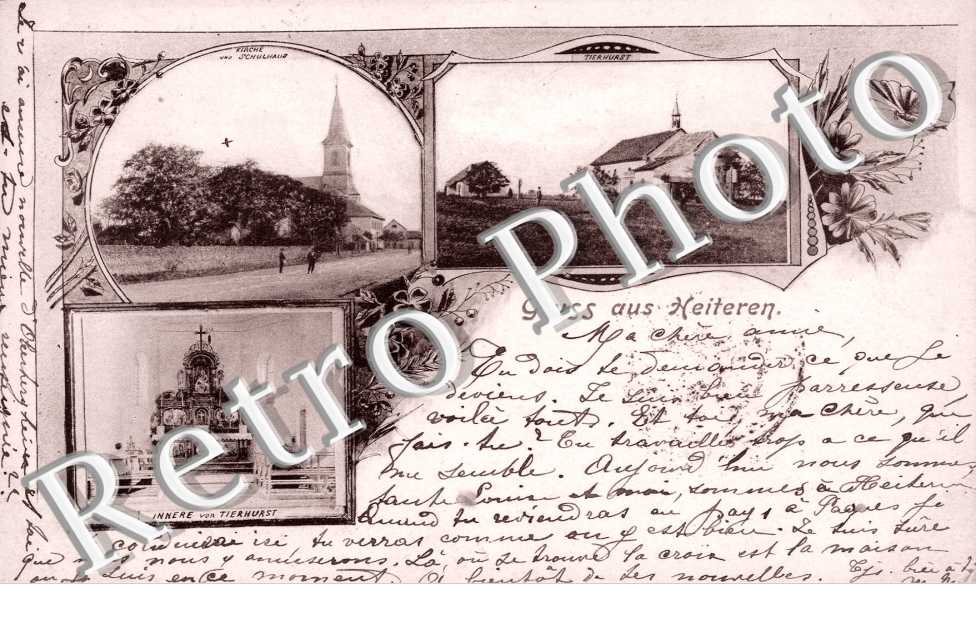 KIRCHE
UND SCHULHAUS
TIERHURST
Gruss aus Heiteren.
INNERE VON TIERHURST
Ma chère amie,
Tu dois te demander ce que je
deviens. Je suis bien parresseuse
voilà tout. Et toi, ma chère, que
fais-tu? Tu travailles trop a ce qu'il
me semble. Aujourd'hui nous sommes
tante Louise et moi, sommes à Heiteren
Quand tu reviendras au pays à Pâques je
ici tu verras comme on y est bien. Je suis sûre
que nous nous y amuserons. Là, où se trouve la croix est la maison
où je suis en ce moment. A bientôt de tes nouvelles.
Je n'ai aucune nouvelle d'
Retro Photo